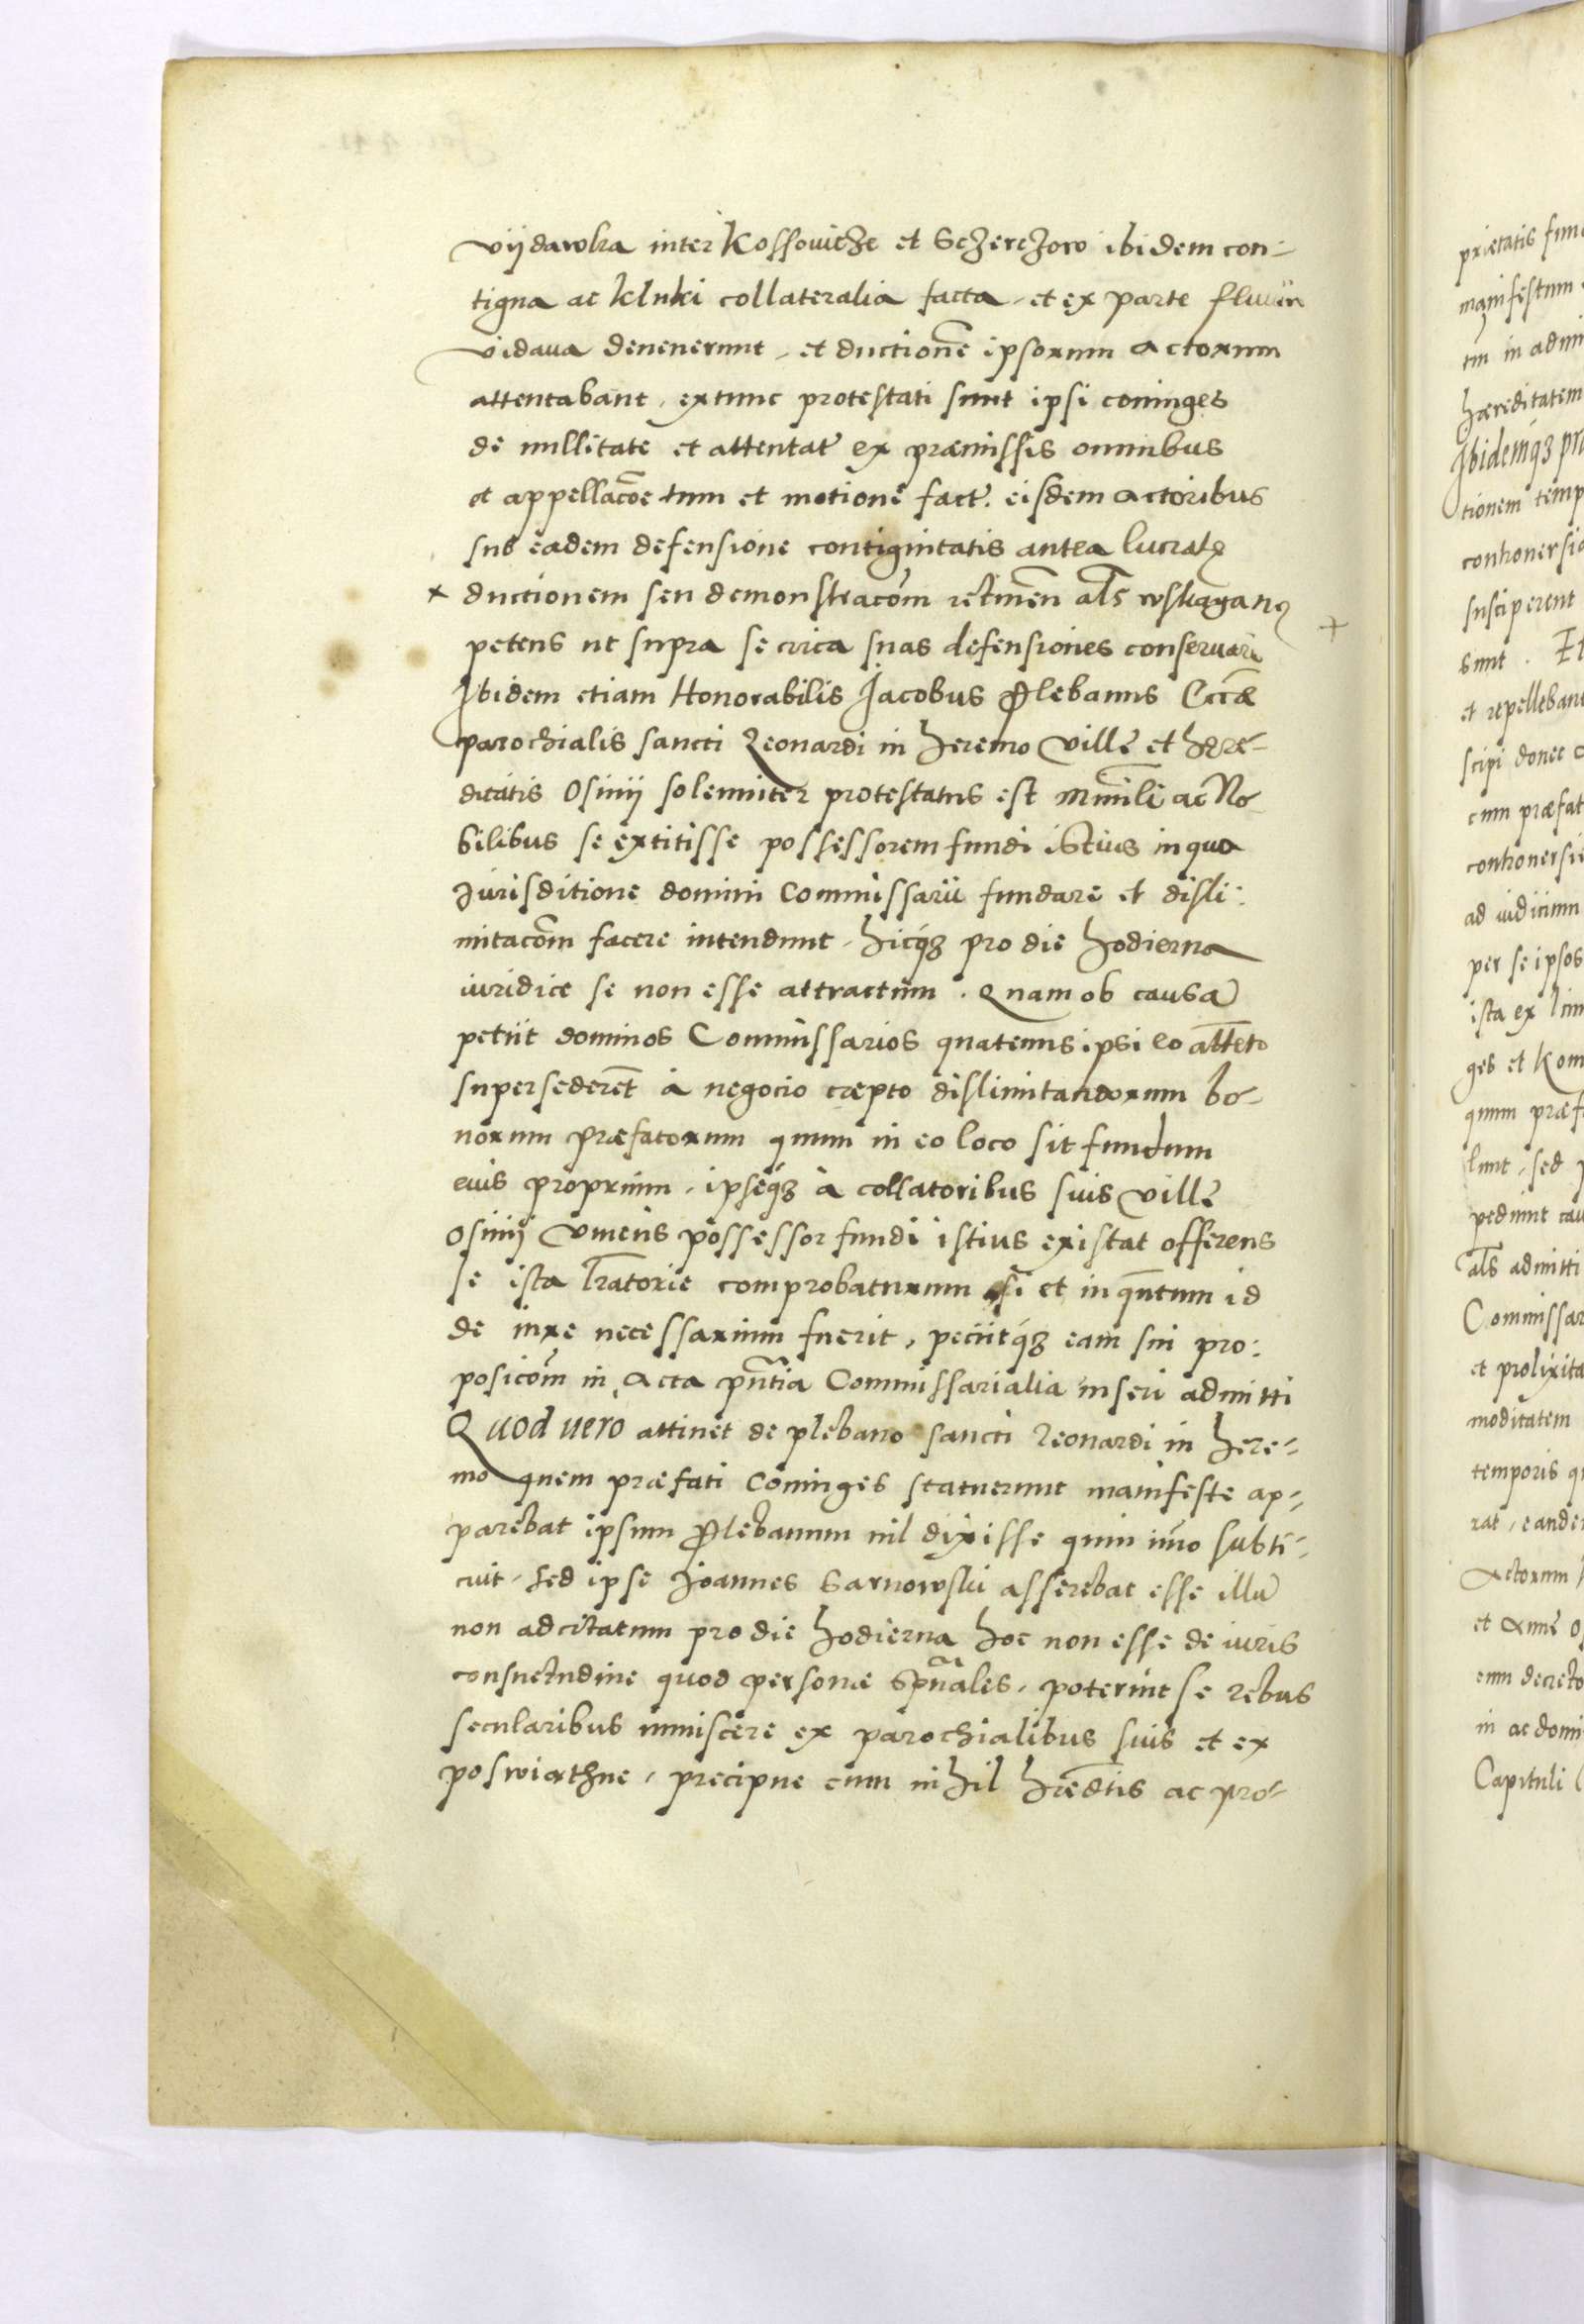 vijdawka inter Kossoviche et Sczerczow ibidem con-
tigua ac kluki collateralia facta, et ex parte fluuii
vidaua deuenerunt, et ductionẽ ipsorum actorum
attentabant, extunc protestati sunt ipsi coniuges
de nullitate et attentat̃ ex præmissis omnibus
et appellacõe tum et motione fact̃. eisdem actoribus
sub eadem defensione contiguitatis antea lucratę
× ductionem seu demonstracõm
petens ut supra se circa suas defensiones conseruari
Ibidem etiam Honorabilis Jacobus Plebanus Eccæ
parochialis sancti Leonardi in heremo villę et here-
ditatis Osiny solemniter protestatus est ac No
bilibus se extitisse possessorem fundi istius in quo
Jurisditione domini Commissarii fundare et disli:
mitacõm facere intendunt, hicq́ꝫ pro die hodierna
iuridice se non esse attractum. Quam ob causã
petiit dominos Commissarios quatenus ipsi eo attẽto
supersederẽt à negocio cæpto dislimitandorum bo-
norum præfatorum quum in eo loco sit fundum
eius proprium, ipseq́ꝫ à collatoribus suis villę
Osiny viuens possessor fundi istius existat offerens
se ista l̃ratorie comprobaturum si et in quãtum id
de iure necessarium fuerit, peciitq́ꝫ eam sui pro:
posicõm in Acta pñtia Commissarialia inseri admitti
Quod uero attinet de plebano sancti Leonardi in here-
mo quem præfati Coniuges statuerunt manifeste ap-
parebat ipsum Plebanum nil dixisse quin imõ subti-
cuit, sed ipse Joannes Sarnowski asserebat esse illũ
non adcitatum pro die hodierna hoc non esse de iuris
consuetudine quod personæ Spũales, poterint se rebus
secularibus immiscere ex parochialibus suis et ex
poswiathne, precipue cum nihil hrẽdtis ac pro-
prietatis fun
manifestum
tm in admi
hæreditatem
Ibidemq́ꝫ pr
tionem temp
controuersia
susciperent
sunt. Et
et repellebant
scipi donec
cum præfat
controuersi
ad iudicium
per se ipsos
ista ex lim
ges et Kom
quum præf
lunt, sed
pediunt cau
al̃s admitti
Commissar
et prolixita
moditatem
temporis q
rat, eande
Actorum
et Annę
eum decreto
in ac domi
Capituli